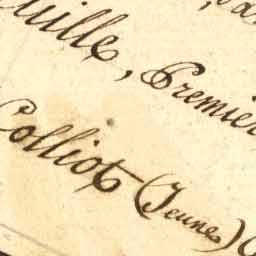 uille, Premier
Colliot (Jeune)